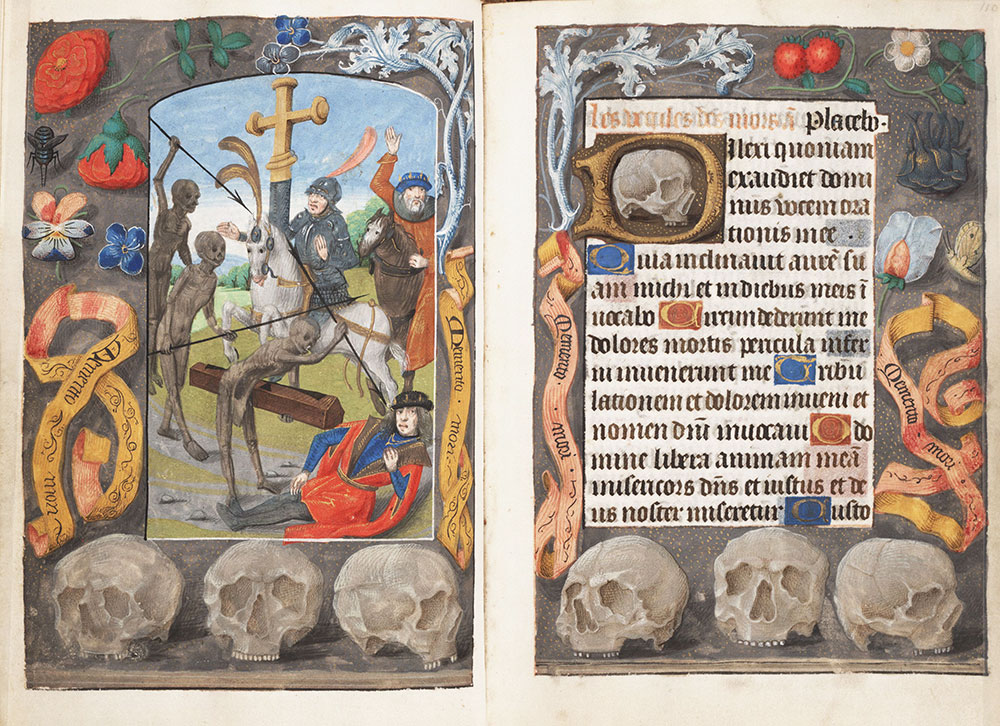 Memento
mori
Memento · mori ·
110
Les vegiles des mors añ Placebo ·
Dilexi quoniam
exaudiet domi
nus vocem ora
tionis mee
Quia inclinauit aurẽ su
am michi et in diebus meis ĩ
uocabo Circundederunt me
dolores mortis pericula infer
ni inuenerunt me Tribu
lationem et dolorem inueni et
nomen dñi inuocaui O do
mine libera animam meã
misericors dñs et iustus et de
us noster miseretur Custo
Memento · mori ·
Memento mori